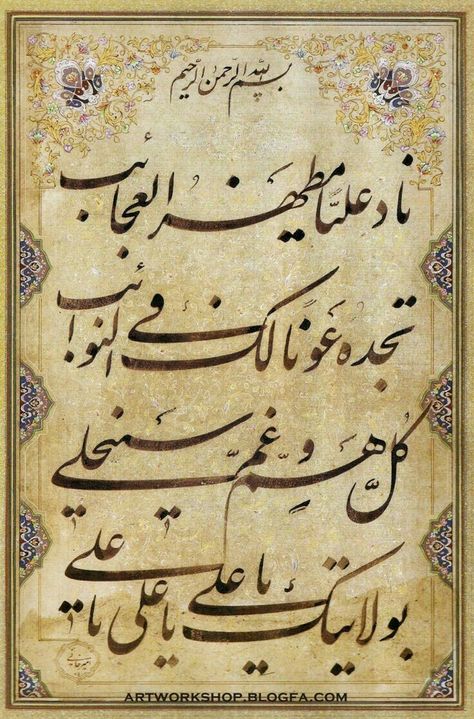 بسم الله الرحمن الرحیم
ناد علیًا مظهر العجائب
تجده عونًا لک في النوائب
کُل هَمٍّ وَ غمٍّ سینجلي
بولایتک یا علي یا علي یا علي
ARTWORKSHOP.BLOGFA.COM